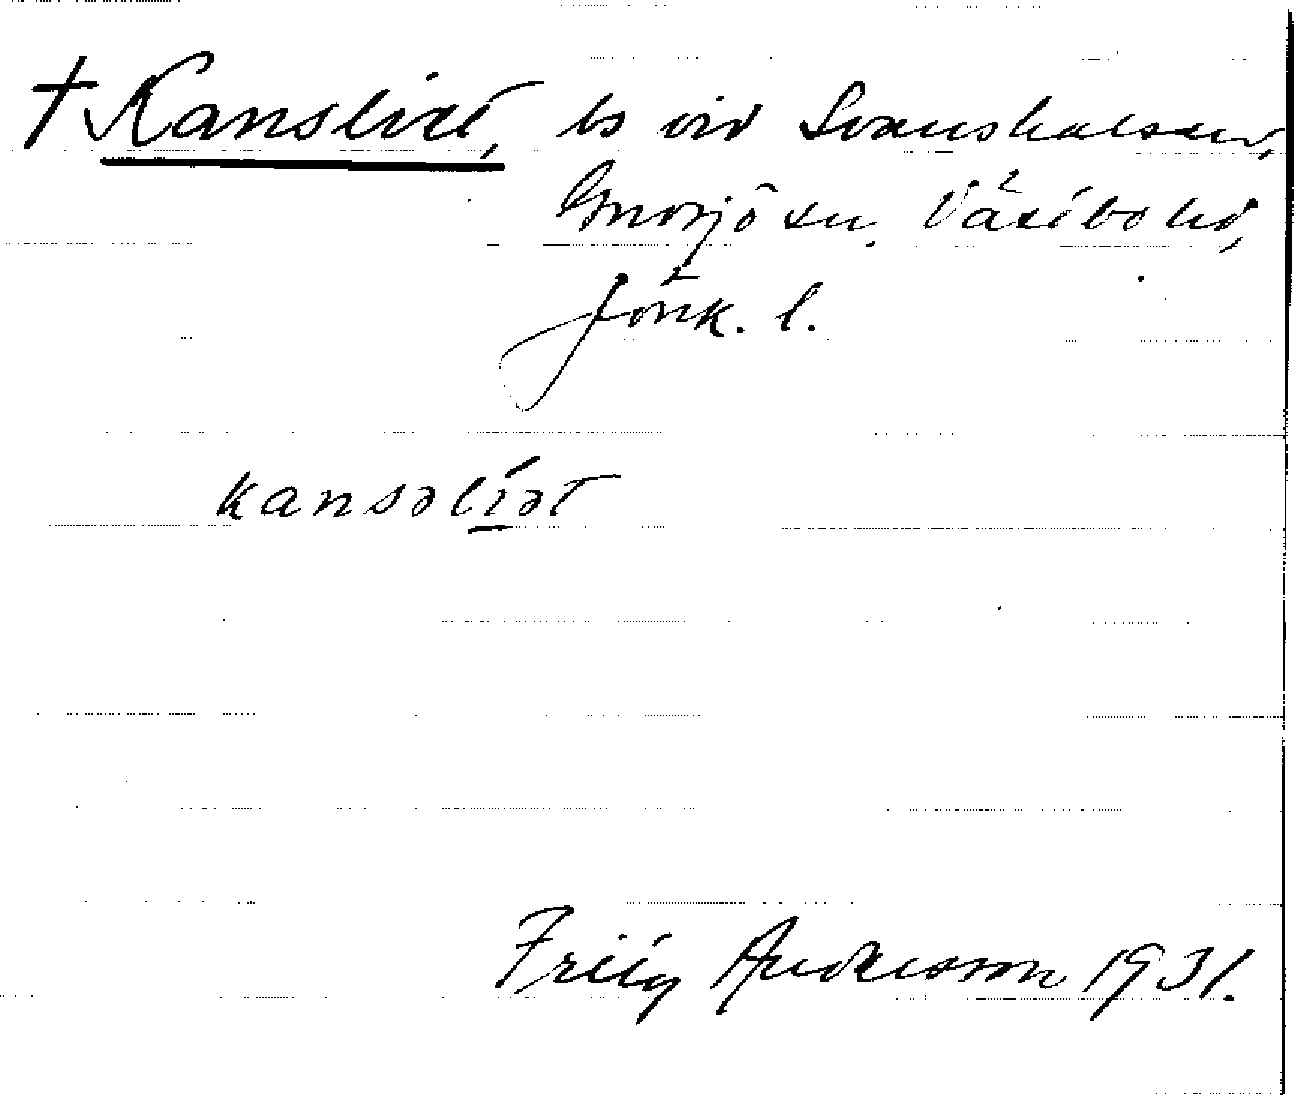 † Kansliet, ts vid Svanshalsen,
Gnosjö sn, Västbo hd,
Jönk. l.
kansəlíət
Friig Andersson 1931.